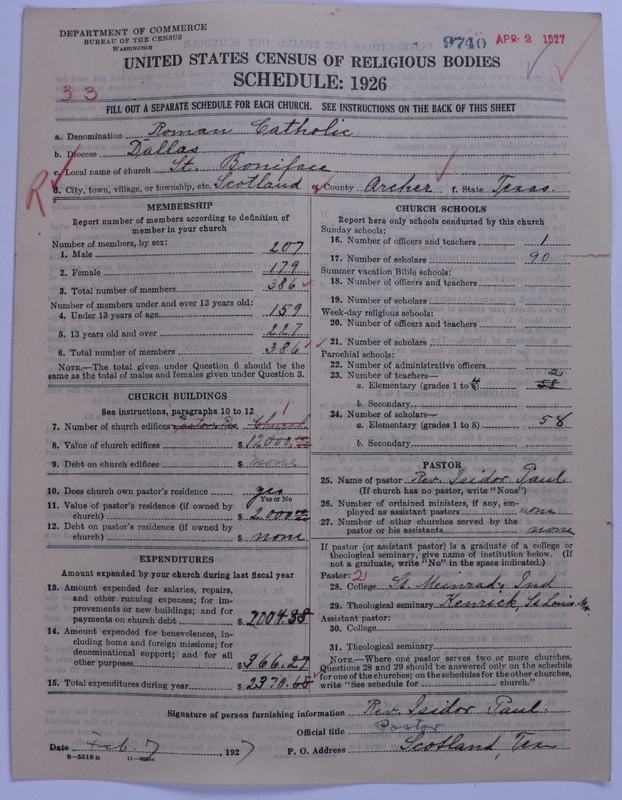 DEPARTMENT OF COMMERCE
BUREAU OF THE CENSUS
WASHINGTON
9740 APR 2 1927
UNITED STATES CENSUS OF RELIGIOUS BODIES
SCHEDULE: 1926
33
FILL OUT A SEPARATE SCHEDULE FOR EACH CHURCH. SEE INSTRUCTIONS ON THE BACK OF THIS SHEET
a. Denomination Roman Catholic
b. Diocese Dallas
c. Local name of church St. Boniface
d. City, town, village, or township, etc. Scotland e. County Archer f. State Texas.
R
MEMBERSHIP
Report number of members according to definition of
member in your church
Number of members, by sex:
1. Male 207
2. Female 179
3. Total number of members 386
Number of members under and over 13 years old:
4. Under 13 years of age 159
5. 13 years old and over 227
6. Total number of members 386
NOTE.—The total given under Question 6 should be the
same as the total of males and females given under Question 3.
CHURCH BUILDINGS
See instructions, paragraphs 10 to 12
7. Number of church edifices Church 1
8. Value of church edifices $ 12000.00
9. Debt on church edifices $ none
10. Does church own pastor's residence yes
Yes or No
11. Value of pastor's residence (if owned by
church) $ 2000.00
12. Debt on pastor's residence (if owned by
church) $ none
EXPENDITURES
Amount expended by your church during last fiscal year
13. Amount expended for salaries, repairs,
and other running expenses; for im-
provements or new buildings; and for
payments on church debt $ 2004.38
14. Amount expended for benevolences, in-
cluding home and foreign missions; for
denominational support; and for all
other purposes $ 366.27
15. Total expenditures during year $ 2370.65
CHURCH SCHOOLS
Report here only schools conducted by this church
Sunday schools:
16. Number of officers and teachers 1
17. Number of scholars 90
Summer vacation Bible schools:
18. Number of officers and teachers
19. Number of scholars
Week-day religious schools:
20. Number of officers and teachers
21. Number of scholars
Parochial schools:
22. Number of administrative officers
23. Number of teachers— 2
a. Elementary (grades 1 to 8) 58
b. Secondary
24. Number of scholars—
a. Elementary (grades 1 to 8) 58
b. Secondary
PASTOR
25. Name of pastor Rev. Isidor Paul
(If church has no pastor, write "None")
26. Number of ordained ministers, if any, em-
ployed as assistant pastors none
27. Number of other churches served by the
pastor or his assistants none
If pastor (or assistant pastor) is a graduate of a college or
theological seminary, give name of institution below. (If
not a graduate, write "No" in the space indicated.)
Pastor: 2
28. College St. Meinrad, Ind
29. Theological seminary Kenrick, St. Louis, Mo.
Assistant pastor:
30. College
31. Theological seminary
NOTE.—Where one pastor serves two or more churches,
Questions 28 and 29 should be answered only on the schedule
for one of the churches; on the schedules for the other churches,
write "See schedule for church."
Signature of person furnishing information Rev. Isidor Paul.
Official title Pastor
Date Feb. 7, 1927 P. O. Address Scotland, Tex
8—5518a